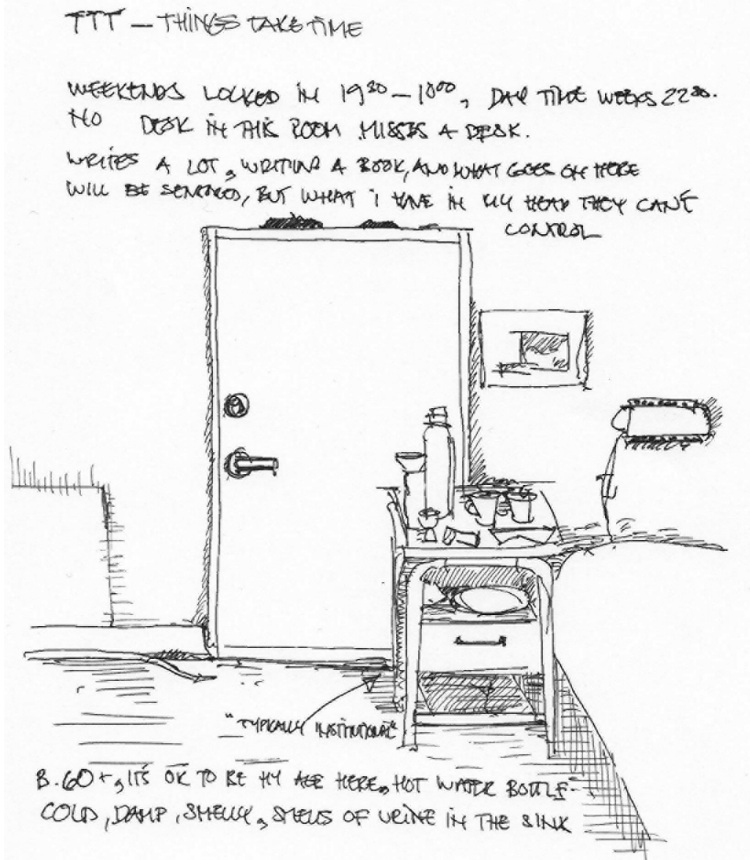 TTT – THINGS TAKE TIME
WEEKENDS LOCKED IN 19³⁰ – 10⁰⁰, DAY TIME WEEKS 22³⁰.
NO DESK IN THIS ROOM MISSES A DESK.
WRITES A LOT, WRITING A BOOK, AND WHAT GOES ON HERE
WILL BE SENSORED, BUT WHAT I HAVE IN MY HEAD THEY CAN'T
CONTROL
"TYPICALLY INSTITUTIONAL"
B. 60+, IT'S OK TO BE MY AGE HERE, HOT WATER BOTTLE –
COLD, DAMP, SMELLY, SMELLS OF URINE IN THE SINK